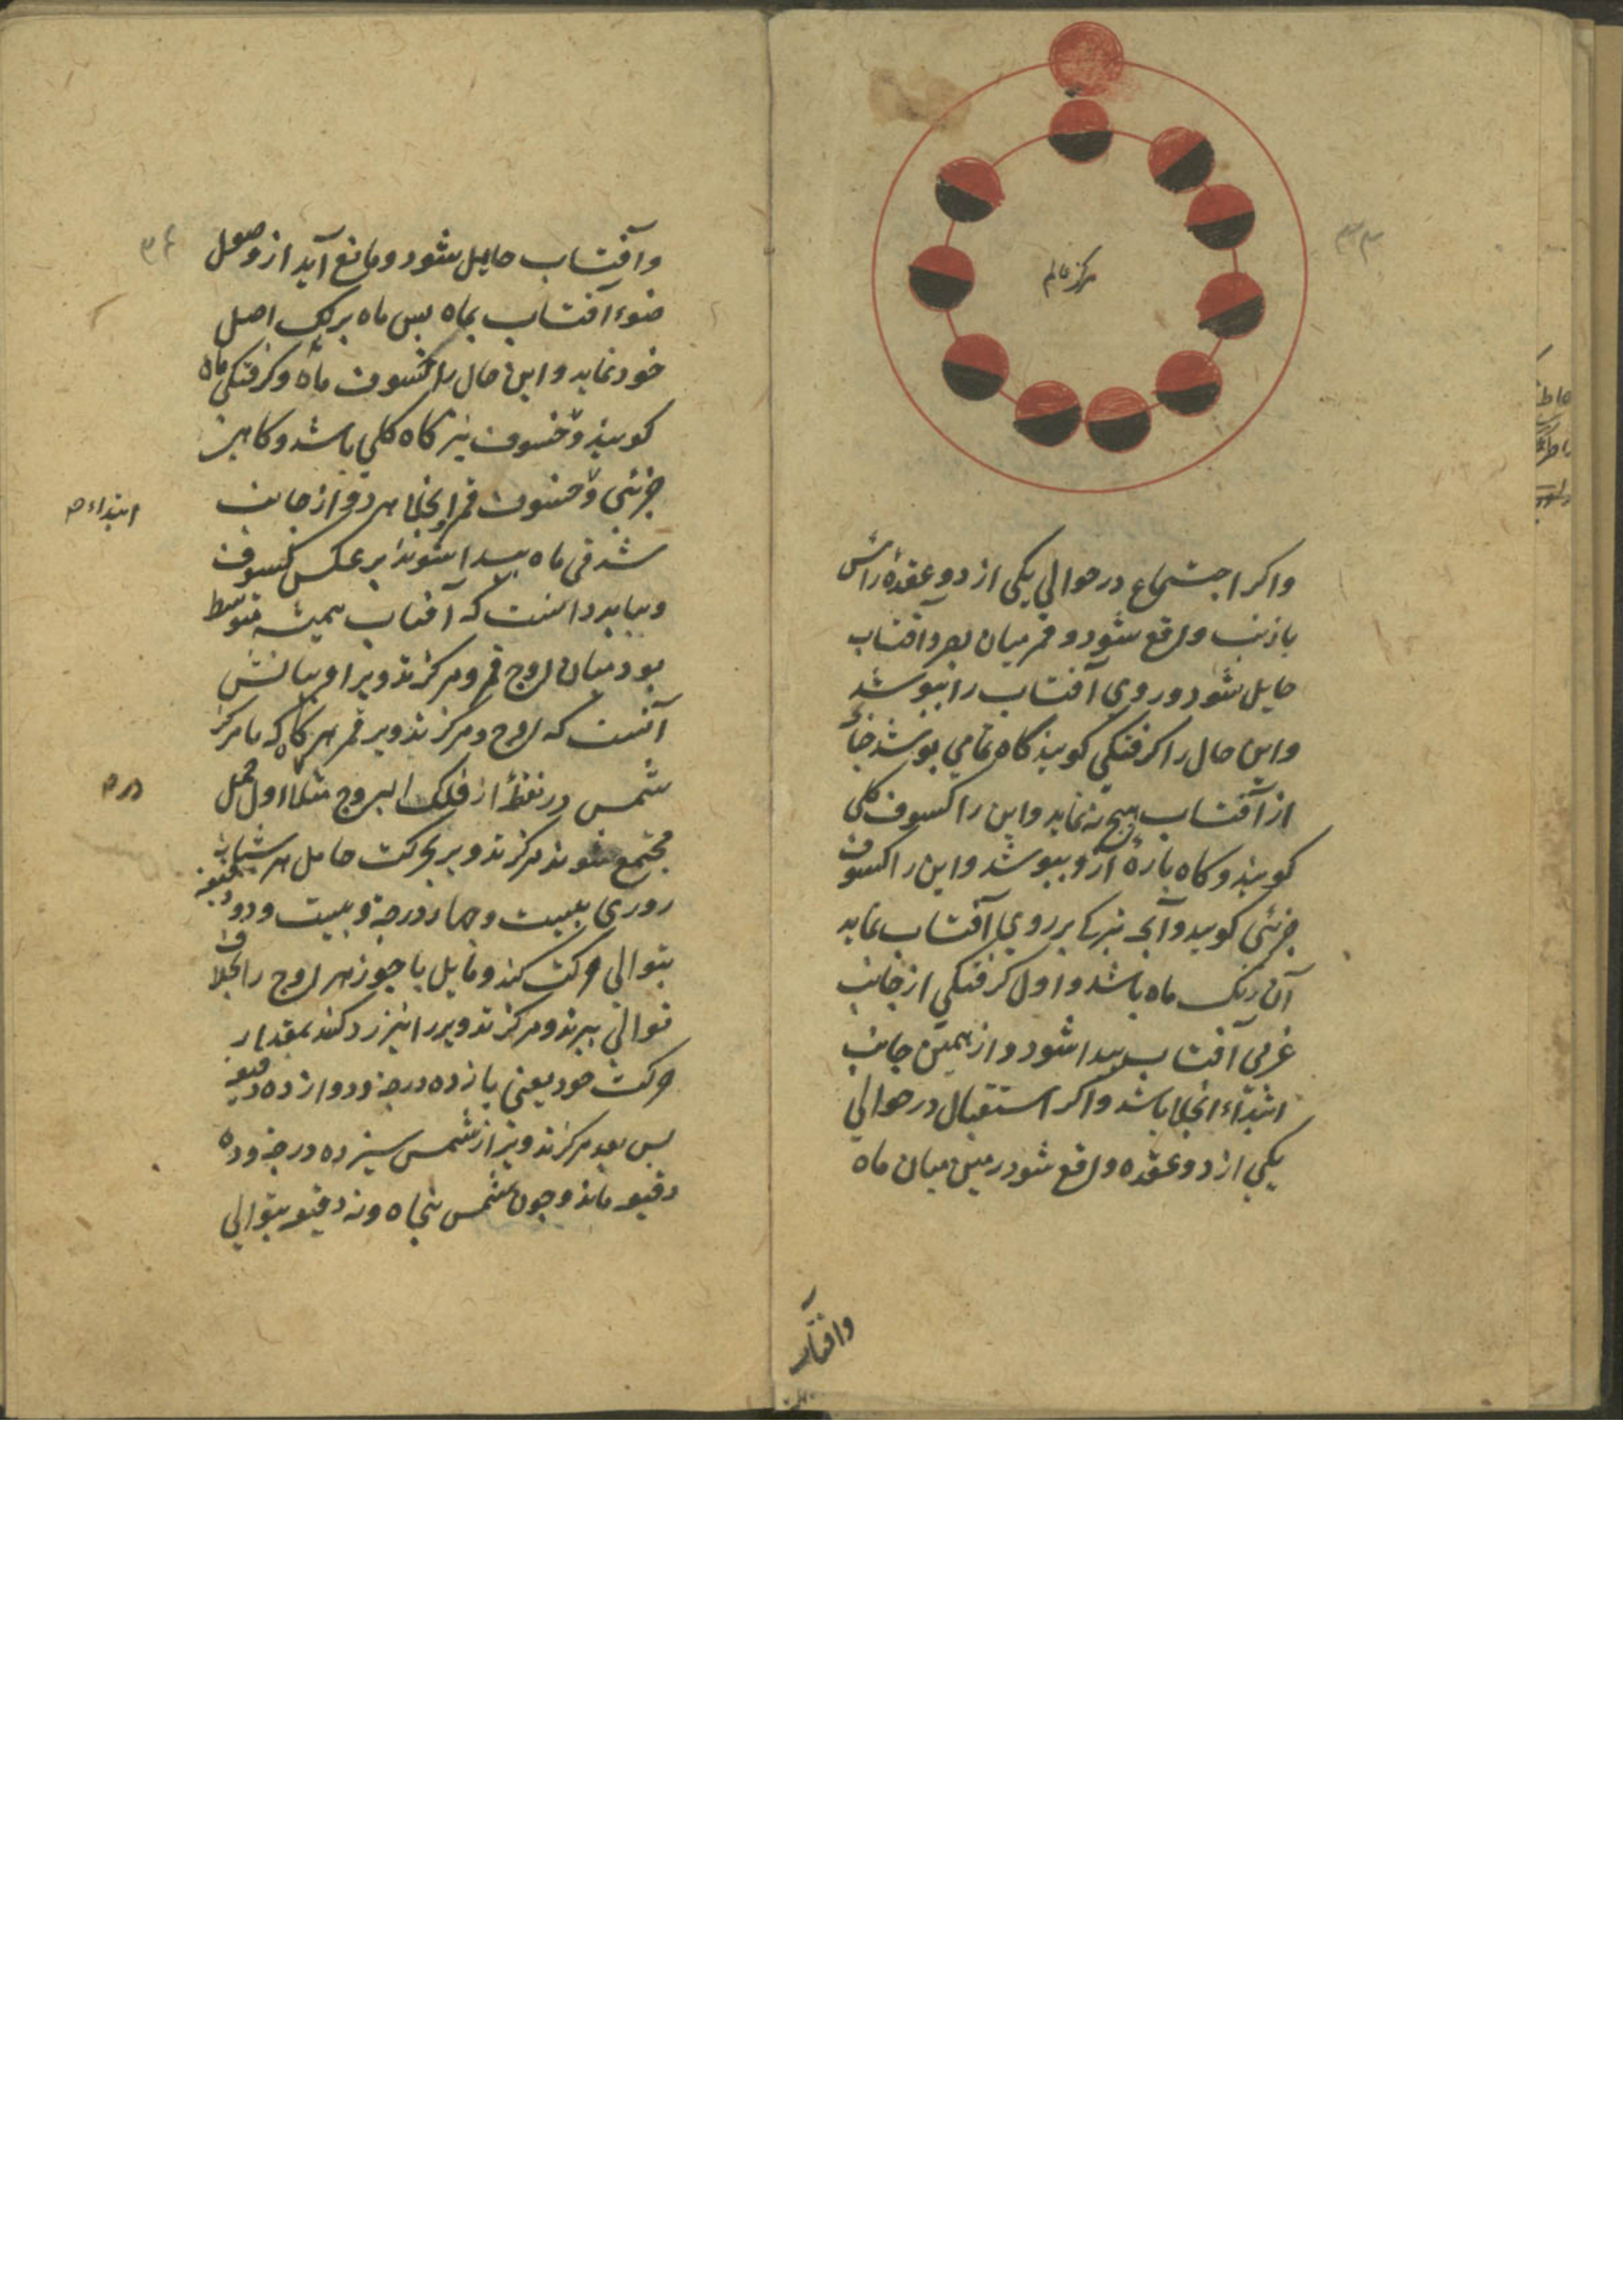 مرکز عالم
واکر اجتماع در حوالي یکی از دو عقدهٔ راس
یا ذنب واقع شود و قمر میان بصر و آفتاب
حایل شود و روی آفتاب را ببوشد
واین حال را کرفتکي کویند کاه بتمامي بوشد جنانک
از آفتاب هیج نه نماید واین را کسوف کلي
کویند و کاه بارهٔ ازو ببوشد واین را کسوف
جزئی کویند وآنجه تیرکی بر روي آفتاب نماید
آن رنک ماه باشد واول کرفتکي از جانب
غربی آفتاب بیدا شود و از همین جانب
ابتداء انجلا باشد واکر استقبال در حوالي
یکي از دو عقده واقع شود زمین میان ماه
وآفتاب
وآفتاب حایل شود و مانع آید از وصول
ضوء آفتاب بماه بس ماه برنک اصل
خود نماید واین حال را خسوف ماه وکرفتکي ماه
کویند وخسوف نیز کاه کلي باشد وکاهي
جزئی وخسوف قمر وانجلا هر دو از جانب
ابتداء
شرقي ماه بیدا شوند بر عکس کسوف
وبباید دانست که آفتاب همیشه متوسط
بود میان اوج قمر ومرکز تدویر او بیانش
آنست که اوج ومرکز تدویر قمر هرکاه که با مرکز
شمس در نقطهٔ از فلک البروج مثلا اول حمل
در
مجتمع شوند مرکز تدویر بحرکت حامل هر شبانه
روزی بیست وچهار درجه وبیست ودو دقیقه
بتوالي حرکت کند ومایل با جوزهر اوج را بخلاف
توالي ببرند ومرکز تدویر را نیز رد کنند بمقدار
حرکت خود یعني یازده درجه ودوازده دقیقه
بس بعد مرکز تدویر از شمس سیزده درجه وده
دقیقه ماند وجون شمس بنجاه ونه دقیقه بتوالي